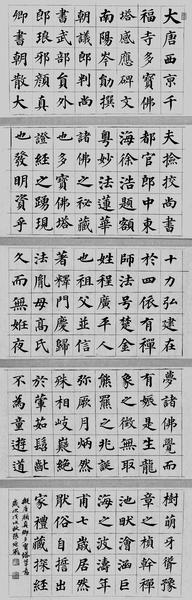 大唐西京千
福寺多寶佛
塔感應碑文
南陽岑勛撰
朝議郎判尚
書武部員外
郎琅邪顏真
卿書朝散大
夫撿挍尚書
都官郎中東
海徐浩題額
粵妙法蓮華
諸佛之秘藏
也多寶佛塔
證經之踴現
也發明資乎
十力弘建在
於四依有禪
師法号楚金
姓程廣平人
也祖父並信
著釋門慶歸
法胤母高氏
久而無妊夜
夢諸佛覺而
有娠是生龍
象之徵無取
熊羆之兆誕
弥厥月炳然
殊相岐嶷絕
於葷茹髫齔
不為童遊道
樹萌牙聳豫
章之楨幹禪
池畎澮涵巨
海之波濤年
甫七歲居然
猒俗自誓出
家禮藏探經